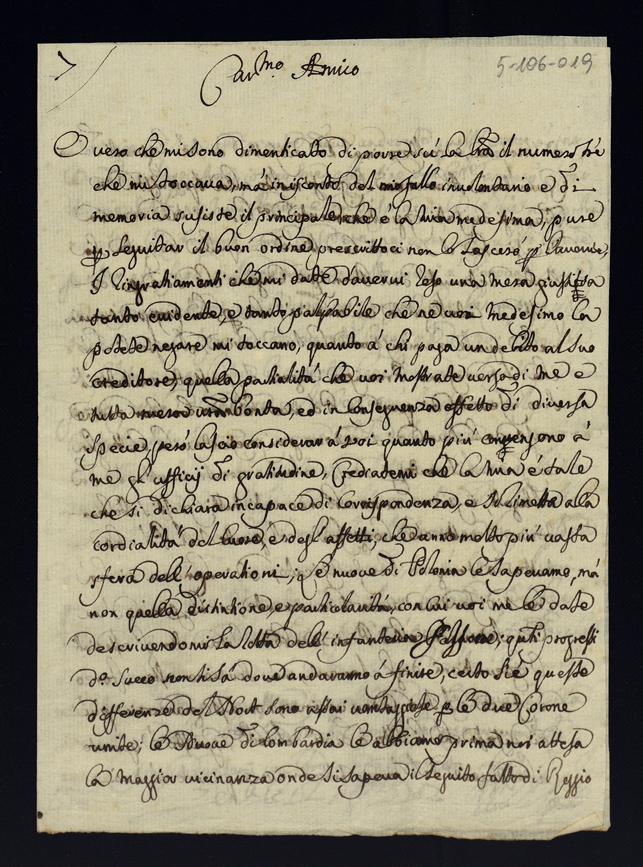 5-106-019
Car.mo Amico
O vero che mi sono dimenticatto di porre sù la lra il numero trè
che mi toccaua, mà in isconto del mio fallo inuolontario e di
memoria susiste il principale che è la mia medesima, pure
p seguitar il buon ordine prescrittoci non lo lascerò p l'auenire,
I ringratiamenti che mi datte d'auerui reso una mera giustitia
tanto euidente, e tanto palpabile che ne uoi medesimo la
potete negare mi toccano, quanto à chi paga un debito al suo
creditore, quella partialità che uoi mostrate uerso di me e
tutta mera bontà, ed in conseguenza effetto di diuersa
specie, però lascio considerar à uoi quanto più conuengono à
me gl' ufficij di gratitudine, Crediatemi che la mia è tale
che si dichiara incapace di corrispondenza, e si rimette alla
cordialità del cuore, e degl' affetti, che anno molto più uasta
sfera dell' operationi; Le nuoue di Polonia le sapeuamo, mà
non quella distintione, e particolarità, con cui uoi me le date
descriuendomi la rotta dell' infanteria Sassone; qsti progressi
do. Sueco non si sà doue andaranno à finire, certo si è queste
differenze del Nort sono assai uantaggiose p le due Corone
unite; le nuoue di Lombardia le abbiamo prima noi attesa
la maggior uicinanza onde si sapeua il seguito fatto di Reggio